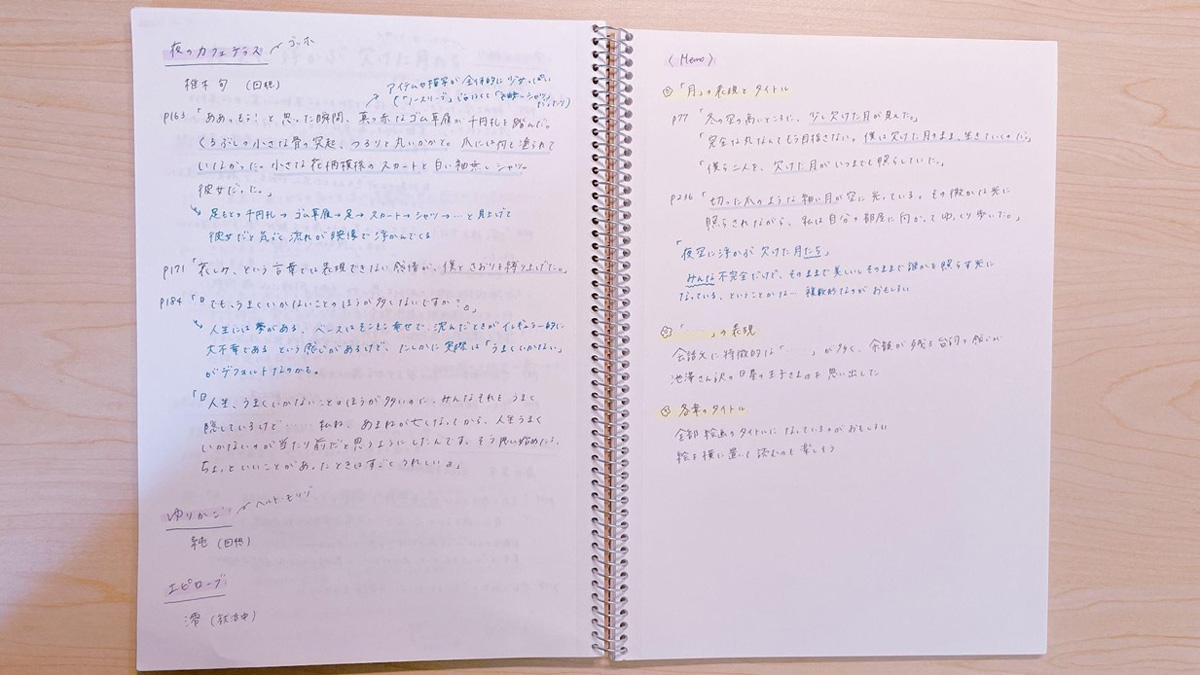 夜のカフェテラス
ゴッホ
椎木 旬 (回想)
アイテムや描写が全体的に少女っぽい
(「ノースリーブ」ではなくて「袖無しシャツ」だったり)
p163 「ああっもう! と思った瞬間、真っ赤なゴム草履が千円札を踏んだ。
くるぶしの小さな骨の突起、つるりと丸いかかと。爪には何も塗られて
いなかった。小さな花柄模様のスカートと白い袖無しシャツ。
彼女だった。」
足もとの千円札→ゴム草履→足→スカート→シャツ→…と見上げて
彼女だと気づく流れが映像で浮かんでくる
p171 「哀しみ、という言葉では表現できない感情が、僕とさおりを縛り上げた。」
p184 「『でも、うまくいかないことのほうが多くないですか?』」
人生には夢がある、ベースはそこそこ幸せで、沈んだときがイレギュラー的に
大不幸である という感じがあるけど、たしかに実際は「うまくいかない」
がデフォルトなのかも。
「『人生、うまくいかないことのほうが多いのに、みんなそれをうまく
隠しているけど……私ね、あまねが亡くなってから、人生うまく
いかないのが当たり前だと思うようにしたんです。そう思い始めたら、
ちょっといいことがあったときはすごくうれしい』」
ゆりかご
ベルト・モリゾ
純 (回想)
エピローグ
澪 (敍述中)
〈Memo〉
① 「月」の表現とタイトル
p77 「冬の空の高いところに、少し欠けた月が見えた。」
「完全な丸なんてもう目指さない。僕は欠けた月のまま、生きていくのだ。」
「僕ら二人を、欠けた月がいつまでも照らしていた。」
p216 「切った爪のような細い月が空に光っている。その微かな光に
照らされながら、私は自分の部屋に向かってゆっくり歩いた。」
「夜空に浮かぶ欠けた月たち」
みんな不完全だけど、そのままで美しいしそのままで誰かを照らす光に
なっている、ということかな… 複数形なのがおもしろい
② 「……」の表現
会話文に特徴的な「……」が多く、余韻が残る台詞の感じが
池澤さん訳の星の王子さまを思い出した
③ 各章のタイトル
全部絵画のタイトルになっているのがおもしろい
絵を横に置いて読むのも楽しそう